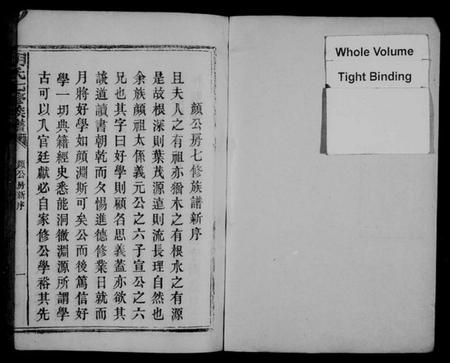 顏公房七修族譜新序
且夫人之有祖亦猶木之有根水之有源
是故根深則葉茂源遠則流長理自然也
余族顏祖太係義元公之六子宣公之六
兄也其字曰好學則顧名思義蓋亦欲其
談道讀書朝乾而夕惕進德修業日就而
月將好學如顏淵斯可矣公而後篤信好
學一切典籍經史悉能洞微淵源所謂學
古可以入官廷獻必自家修公學裕其先
氏七修族譜
顏公房新序
一
Whole Volume
Tight Binding